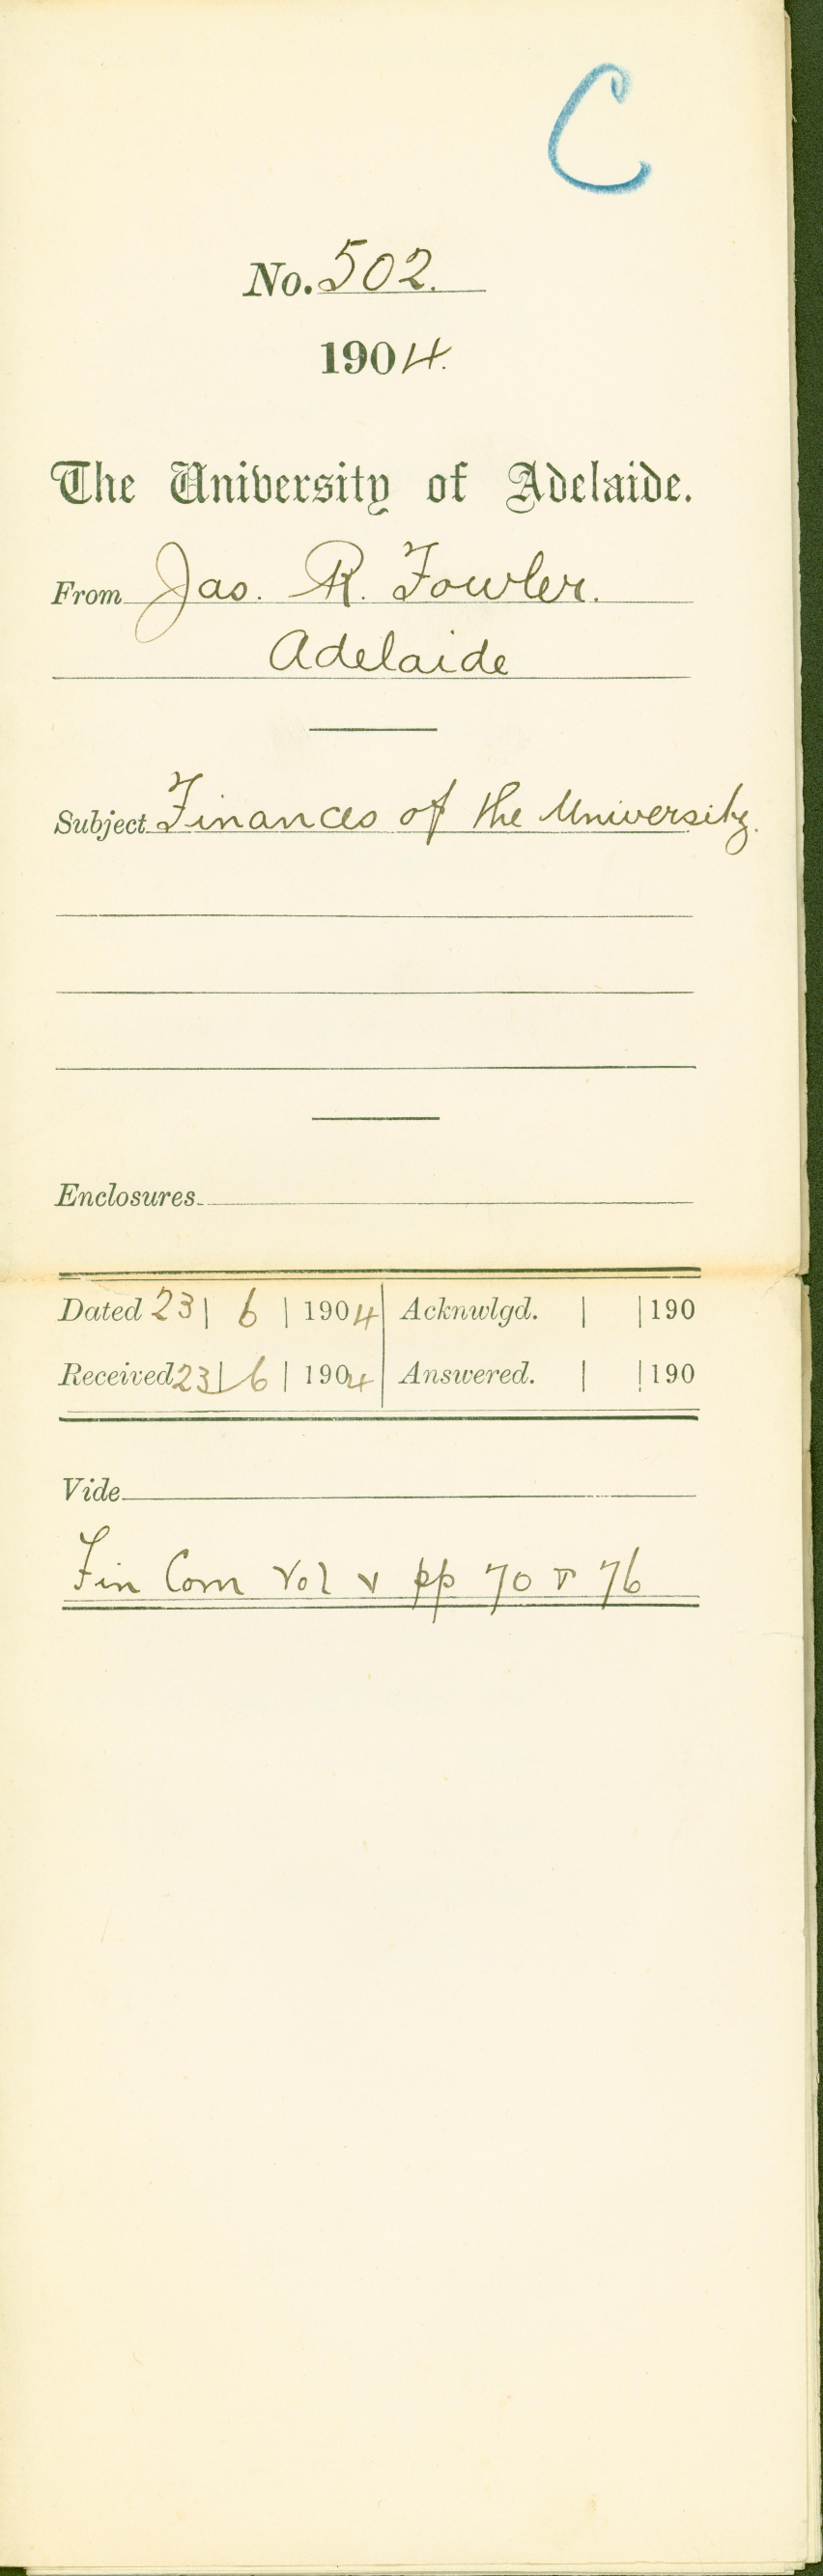 C
No. 502.
1904.
The University of Adelaide.
From Jas. R. Fowler.
Adelaide
Subject Finances of the University.
Enclosures
Dated 23 | 6 | 1904 Acknwlgd. | | 190
Received 23 | 6 | 1904 Answered. | | 190
Vide
Fin Com Vol V pp 70 & 76